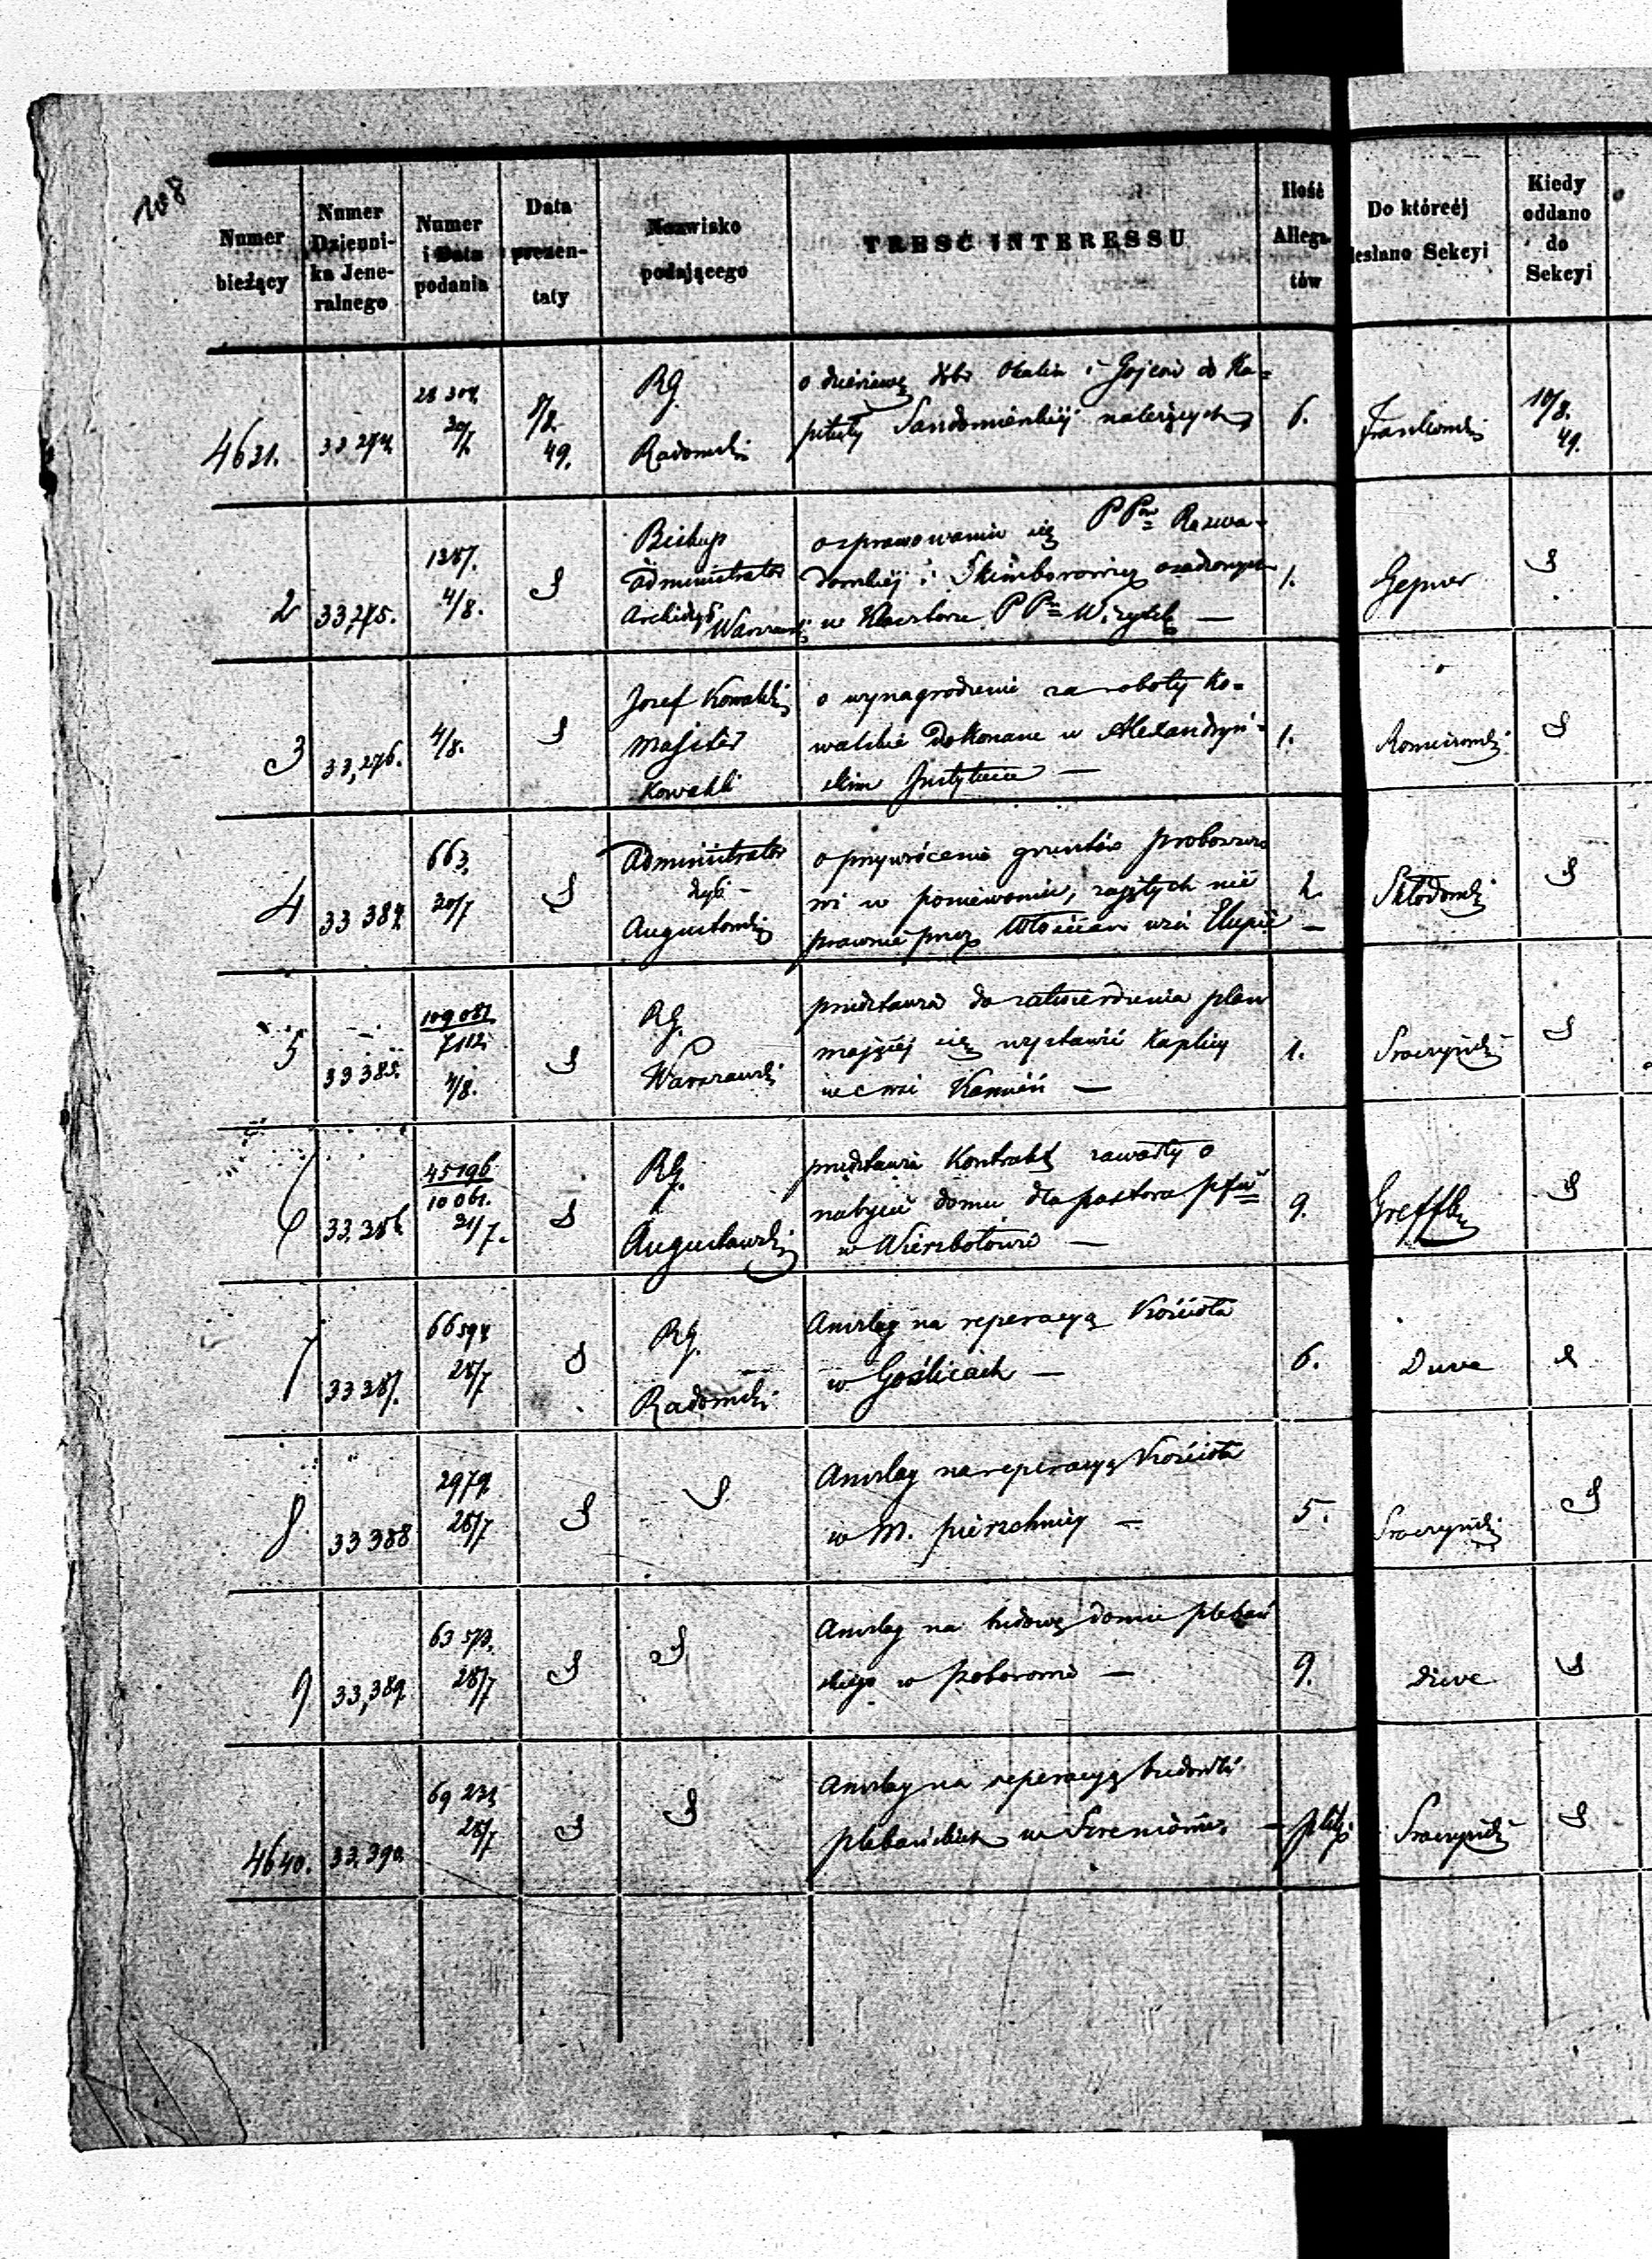 108
Numer bieżący
Numer Dzienni-ka Jene-ralnego
Numer i Data podania
Data prezen-taty
Nazwisko podającego
TREŚĆ INTERESSU
Ilość Allega-tów
Do któreéj
esłano Sekcyi
Kiedy oddano do Sekcyi
4631.
33 274
28 304
30/7
8/8
49.
RG.
Radomski
o dzierżawę dóbr Okalin i Gojców do Ka=
pituły Sandomierskiej należących
6.
10/8.
49.
2
33,275.
1387.
4/8.
Biskup
administrator
Archidyec
Warszawski
o sprawowaniu się PPn Rozwa-
dowskiej i Skimborowicz osadzonych
w Klasztorze PPn Wizytek —
1.
Gepner
3
33,276.
4/8.
Jozef Kowalski
Majster
Kowalski
o wynagrodzenie za roboty ko=
walskie dokonane w Alexandryń=
skim Instytucie —
1.
4
33 384
663
20/7
Administrator
dyec
Augustowski
o przywrócenie gruntów probostwo
wi w poniewoniu, zajętych nie
prawnie przez Włościan wsi Słupie —
2
Skłodowski
5
33 385.
109 087
7112
4/8.
RG.
Warszawski
przedstawia do zatwierdzenia plan
mającej się wystawić Kaplicy
we wsi Kamień —
1.
Sroczyński
6
33,386
45196
10061.
21/7.
RG.
Augustowski
przedstawia Kontrakt zawarty o
nabycie domu dla pastora pfii
w Wierzbołowie —
9.
Greffen
7
33 387.
66 594
28/7
RG.
Radomski
Anszlag na reperacyą Kościoła
w Goźlicach —
6.
Duve
8
33 388
2979
28/7
Anszlag na reperacyą Kościoła
w M. pierzchnicy —
5.
Sroczyński
9
33,389
63 573.
28/7
Anszlag na budowę domu plebań
skiego w
9.
Duve
4640.
33,390
69 235
28/7
Anszlag na reperacyą budowli
plebańskich w —
Sroczyński